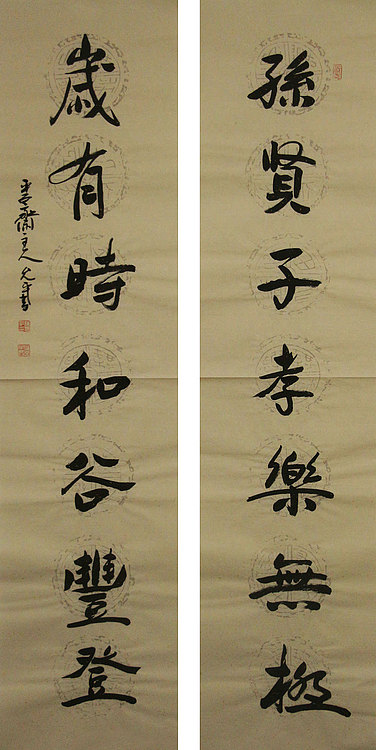 孫賢子孝樂無極
歲有時和谷豐登
齋主人
書